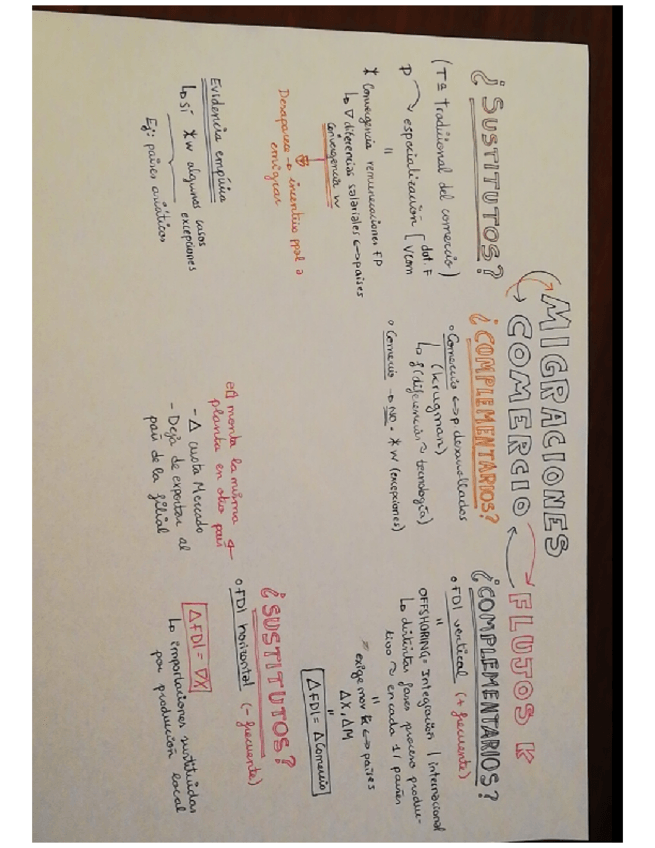 MIGRACIONES
COMERCIO
FLUJOS K
¿SUSTITUTOS?
(Tª tradicional del comercio)
P → especialización [ dot. F
Vcom
* Convergencia remuneraciones FP
"
↳ ∇ diferencias salariales ↔ países
Convergencia W
Desaparece → incentivo ppal a
emigrar
Evidencia empírica
↳ sí *w algunos casos
excepciones
Ej: países asiáticos
¿COMPLEMENTARIOS?
° Comercio ↔ p desarrollados
(Krugman)
↳ f(diferencian ~ tecnología)
° Comercio → NO = *w (excepciones)
¿COMPLEMENTARIOS?
° FDI vertical (+ frecuente)
"
OFFSHORING = Integración / internacional
↳ distintas fases proceso produc-
tivo ~ en cada 1/ países
exige mov K ↔ países
"
ΔX, ΔM
"
ΔFDI = ΔComercio
¿SUSTITUTOS?
° FDI horizontal (- frecuente)
monta la misma
planta en otro país
- Δ cuota Mercado
- Deja de exportar al
país de la filial
ΔFDI = ∇X
↳ importaciones sustituidas
por producción local